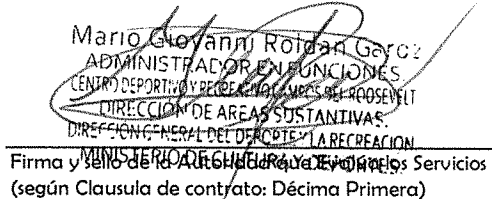 Mario Giovanni Roldan Garoz
ADMINISTRADOR EN FUNCIONES
CENTRO DEPORTIVO Y RECREATIVO CAMPOS DEL ROOSEVELT
DIRECCIÓN DE AREAS SUSTANTIVAS
DIRECCIÓN GENERAL DEL DEPORTE Y LA RECREACION
MINISTERIO DE CULTURA Y DEPORTES
Firma y sello de la Autoridad que Evalúa los Servicios
(según Clausula de contrato: Décima Primera)